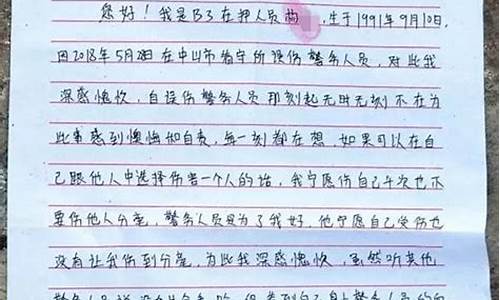 您好！我是B3在押人员尚 ，生于1991年9月10日.
因2018年5月2日在中山市看守所误伤警务人员，对此我
深感愧疚，自误伤警务人员那刻起无时无刻不在为
此事感到懊悔和自责，每一刻都在想，如果可以在自
己跟他人中选择伤害一个人的话，我宁愿伤自己千次也不
要伤他人分毫，警务人员是为了我好，他宁愿自己受伤也
没有让我伤到分毫，为此我深感愧疚，虽然听其他
警务人员说没有什么